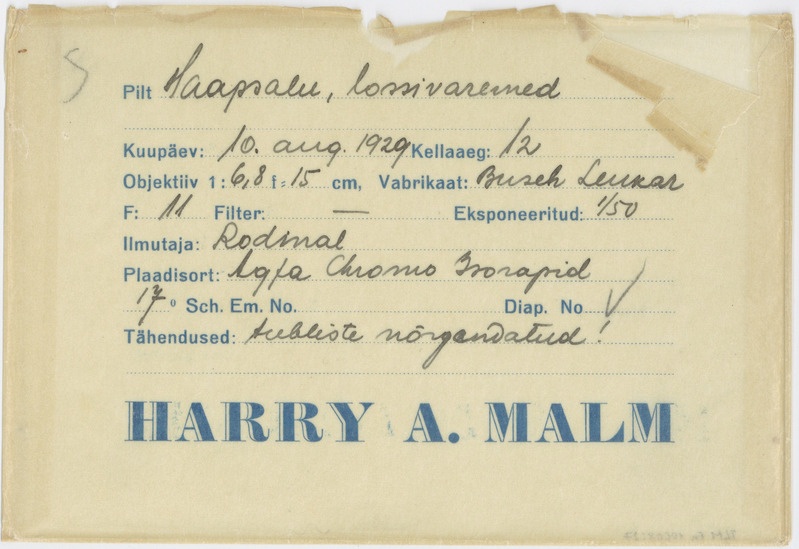 Pilt Haapsalu, lossivaremed
Kuupäev: 10. aug. 1929 Kellaaeg: 12
Objektiiv 1: 6,8 f=15 cm, Vabrikaat: Busch Leukar
F: 11 Filter: — Eksponeeritud: 1/50
Ilmutaja: Rodinal
Plaadisort: Agfa Chromo Isorapid
17° Sch. Em. No. Diap. No
Tähendused: nõrgendatud!
HARRY A. MALM